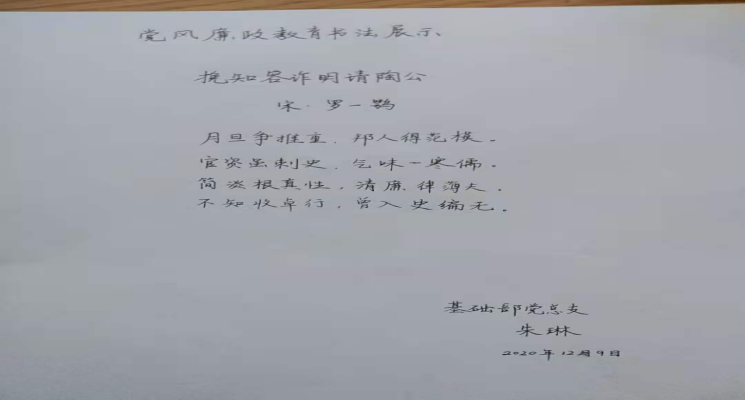 党风廉政教育书法展示
挽知容诈明请陶公
宋·罗一鹗
月旦争推重,邦人得范模。
官资虽刺史,气味一寒儒。
简淡根真性,清廉律薄夫。
不知收卓行,曾入史编无。
基础部党总支
朱琳
2020年12月9日